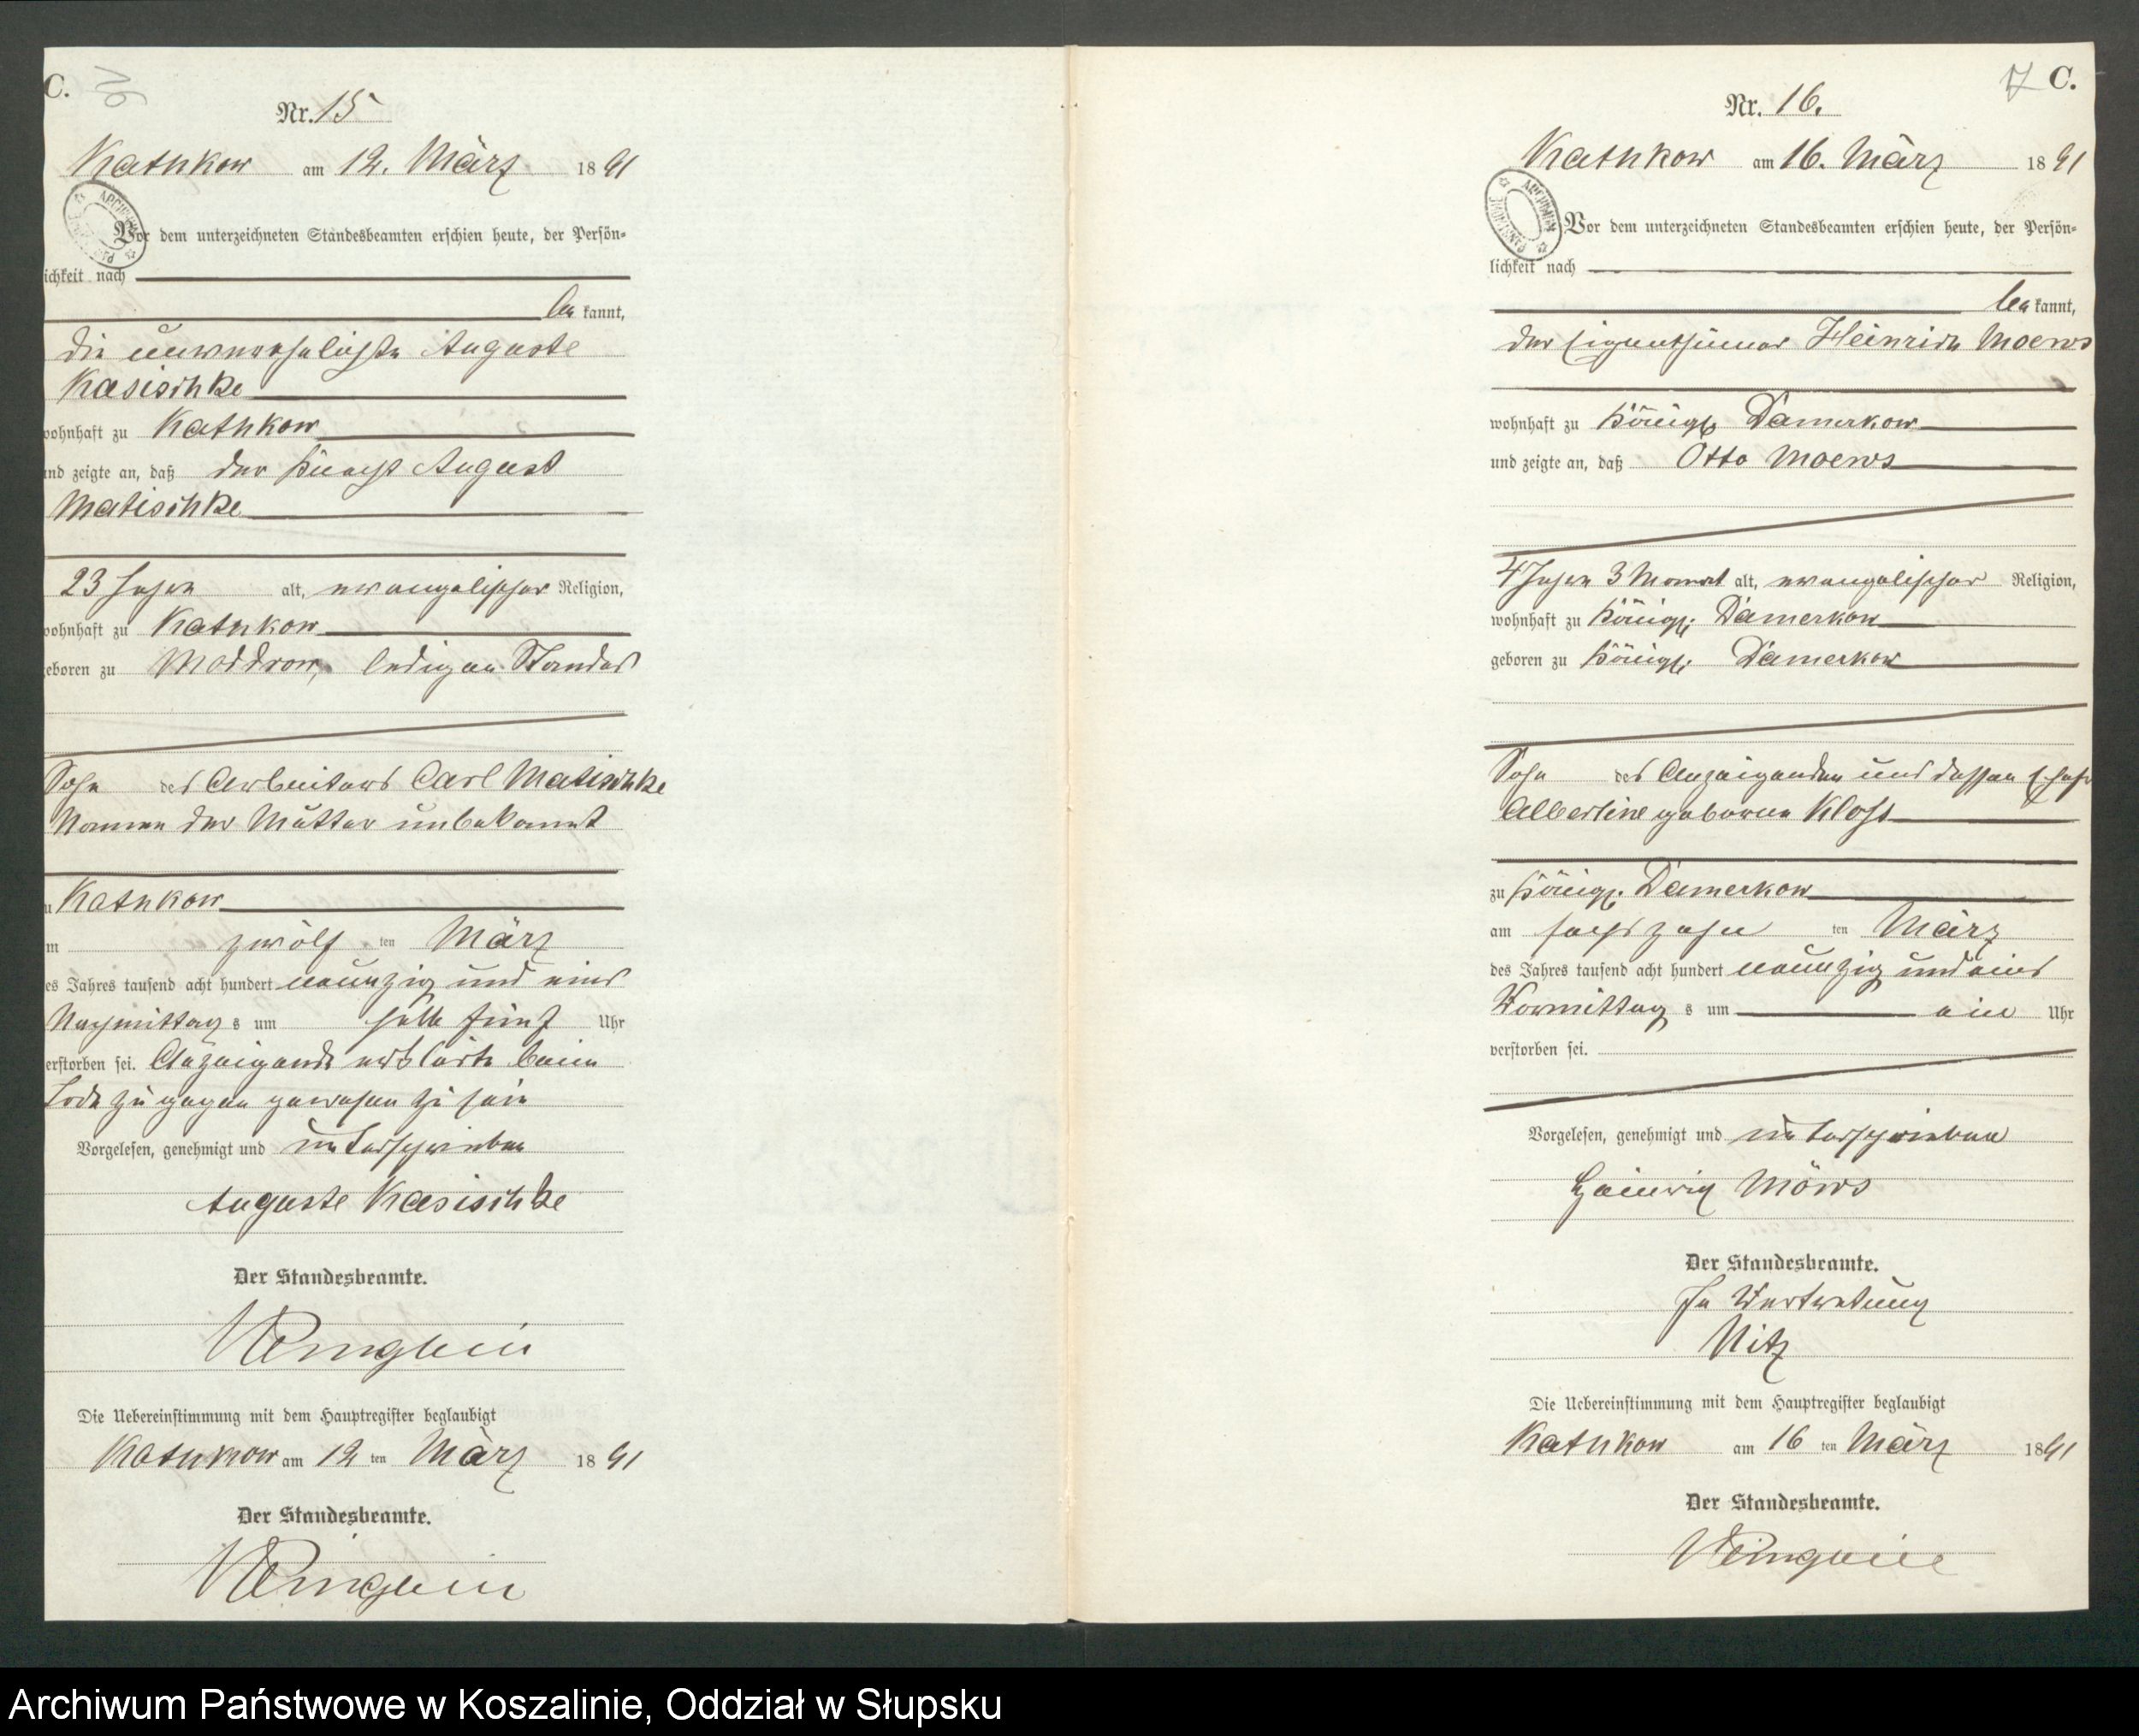 C.
Nr. 15
Kathkow am 12. März 1891
Vor dem unterzeichneten Standesbeamten erschien heute, der Persön=
ichkeit nach
be kannt,
die unverehelichte Auguste
Kasischke
wohnhaft zu Kathkow
und zeigte an, daß der Knecht August
Matischke
23 Jahre alt, evangelischer Religion,
wohnhaft zu Kathkow
geboren zu Moddrow, ledigen Standes
Sohn des Arbeiters Carl Matischke
Namen der Mutter unbekannt
u Kathkow
m zwölf ten März
es Jahres tausend acht hundert neunzig und eins
Nachmittag s um halb fünf Uhr
erstorben sei. Anzeigende erklärte beim
Tode zu gegen gewesen zu sein
Vorgelesen, genehmigt und unterschrieben
Auguste Kasischke
Der Standesbeamte.
Die Uebereinstimmung mit dem Hauptregister beglaubigt
Kathkow am 12 ten März 1891
Der Standesbeamte.
17 C.
Nr. 16.
Kathkow am 16. März 1891
Vor dem unterzeichneten Standesbeamten erschien heute, der Persön=
lichkeit nach
be kannt,
der Eigenthümer Heinrich Moews
wohnhaft zu Königl. Damerkow
und zeigte an, daß Otto Moews
4 Jahre 3 Monat alt, evangelischer Religion,
wohnhaft zu Königl. Damerkow
geboren zu Königl. Damerkow
Sohn des Anzeigenden und dessen Ehefr
Albertine geborne Kloß
zu Königl. Damerkow
am sechszehn ten März
des Jahres tausend acht hundert neunzig und eins
Vormittag s um ein Uhr
verstorben sei.
Vorgelesen, genehmigt und unterschrieben
Heinrich Möws
Der Standesbeamte.
In Vertretung
Nitz
Die Uebereinstimmung mit dem Hauptregister beglaubigt
Kathkow am 16 ten März 1891
Der Standesbeamte.
Archiwum Państwowe w Koszalinie, Oddział w Słupsku